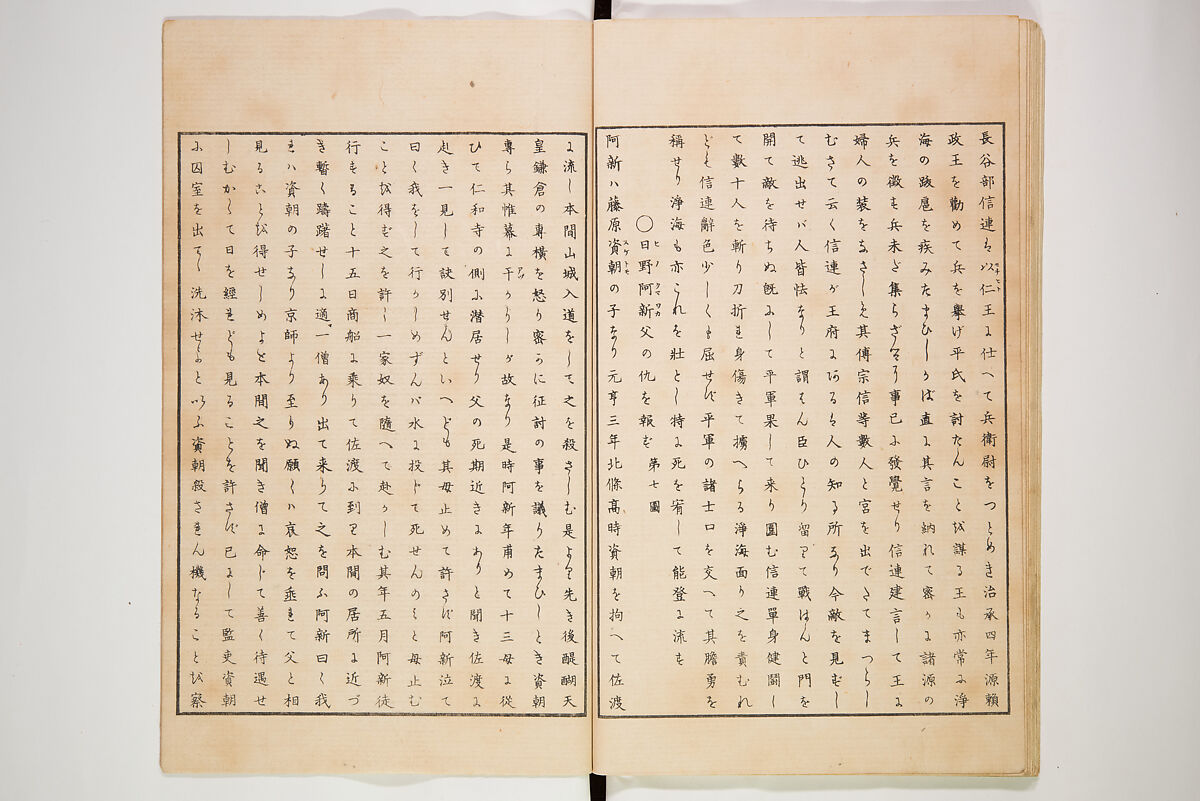 長谷部信連ハ以仁王に仕へて兵衛尉をつとめき治承四年源頼
政王を勸めて兵を擧げ平氏を討たんことを謀る王も亦常に淨
海の跋扈を疾みたまひしかば直に其言を納れて密かに諸源の
兵を徴も兵未だ集らざるに事已に發覺せり信連建言して王に
婦人の装をまさしめ其傅宗信等數人と宮を出でさてまつらし
むさて云く信連が王府にあるは人の知る所なり今敵を見ずし
て逃出せバ人皆怯なりと謂はん臣ひとり留りて戰はんと門を
開て敵を待ちぬ既にして平軍果して来り圍む信連單身健鬪し
て數十人を斬り刀折れ身傷きて擒へらる淨海面り之を責むれ
ども信連辭色少しくも屈せず平軍の諸士口を交へて其膽勇を
稱せり淨海も亦これを壯とし特に死を宥して能登に流も
〇日野阿新父の仇を報ず 第七圖
阿新ハ藤原資朝の子なり元亨三年北條高時資朝を拘へて佐渡
に流し本間山城入道をして之を殺さしむ是より先き後醍醐天
皇鎌倉の專横を怒り密かに征討の事を議りたまひしとき資朝
專ら其帷幕に干かりしが故なり是時阿新年甫めて十三母に從
ひて仁和寺の側に潜居せり父の死期近きにありと聞き佐渡に
赴き一見して訣別せんといへども其母止めて許さず阿新泣て
曰く我をして行かしめずんバ水に投じて死せんのみと母止む
ことを得ず之を許し一家奴を隨へて赴かしむ其年五月阿新徒
行もること十五日商船に乘りて佐渡に到り本間の居所に近づ
き暫く躊躇せしに適一僧あり出て来りて之を問ふ阿新曰く我
ハ資朝の子なり京師より至りぬ願くハ哀恕を垂れて父と相
見ることを得せしめよと本間之を聞き僧に命じて善く待遇せ
しむかくて日を經れども見ることを許さず已にして監吏資朝
に囚室を出て洗沐せよといふ資朝殺されん機なることを察